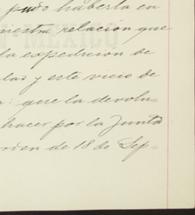 pudo haberla en
nuestra relacion que
la expedicion de
las y este vicio de
: que la devolu-
hacer por la Junta
orden de 18 de Sep-